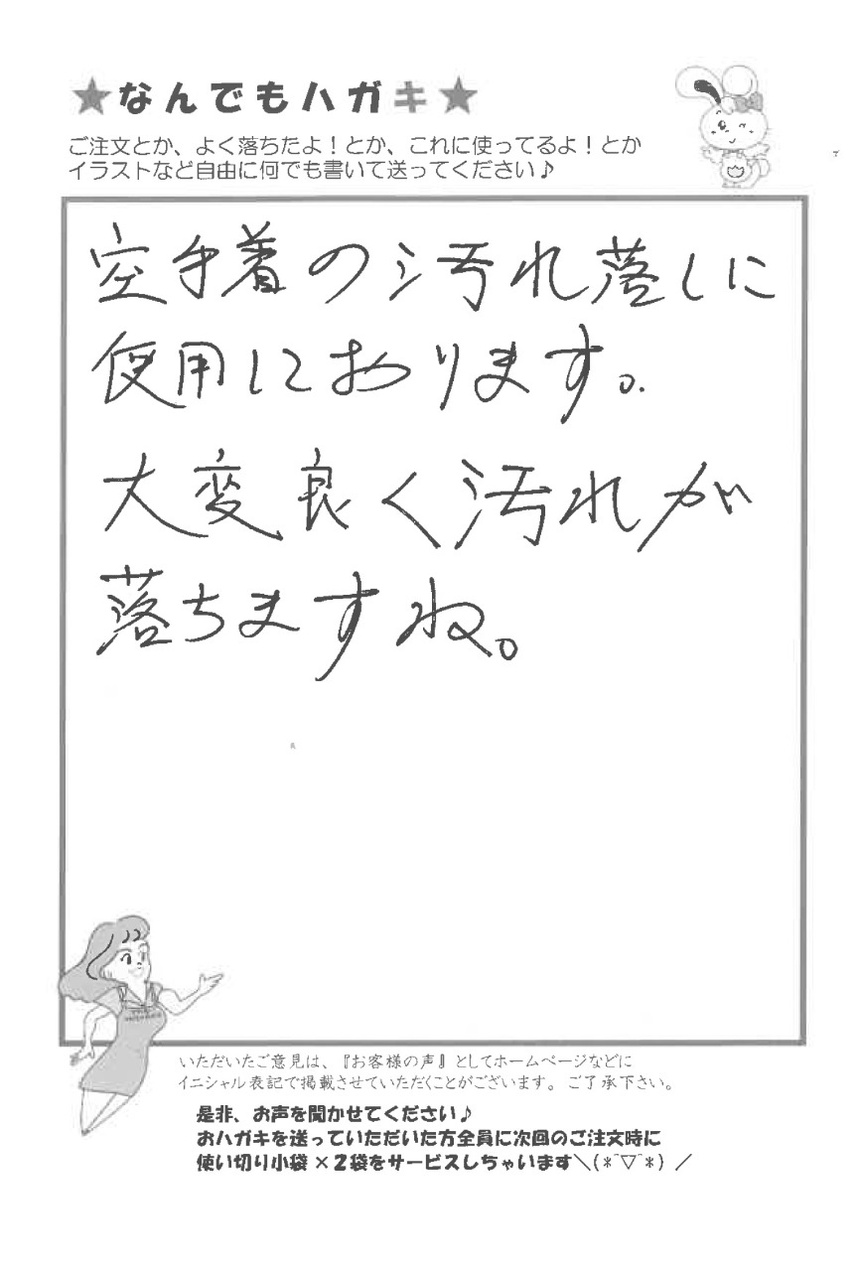 ★なんでもハガキ★
ご注文とか、よく落ちたよ！とか、これに使ってるよ！とか
イラストなど自由に何でも書いて送ってください♪
空手着の汚れ落しに
使用しております。
大変良く汚れが
落ちますね。
いただいたご意見は、『お客様の声』としてホームページなどに
イニシャル表記で掲載させていただくことがございます。ご了承下さい。
是非、お声を聞かせてください♪
おハガキを送っていただいた方全員に次回のご注文時に
使い切り小袋×2袋をサービスしちゃいます＼(*^▽^*)／